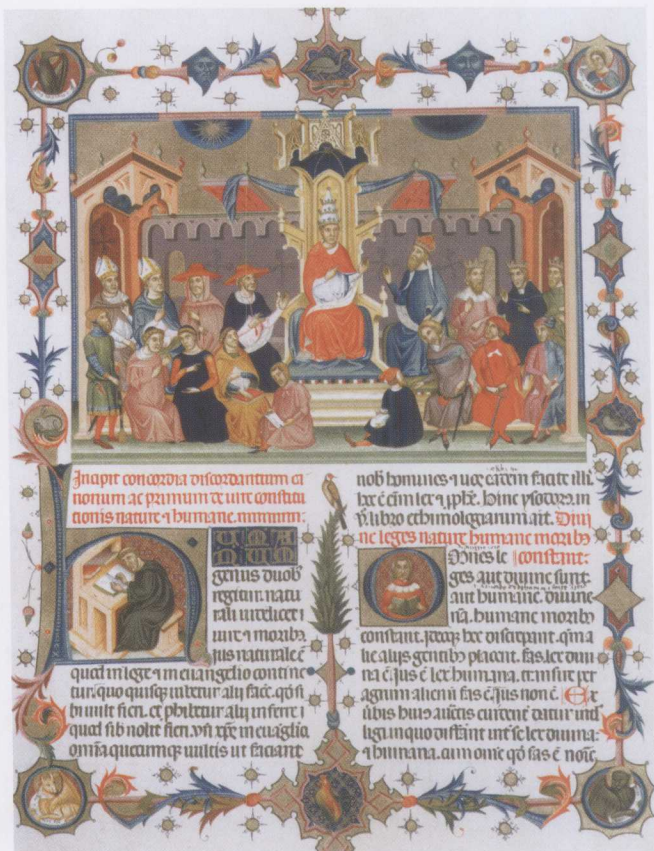 Incipit concordia discordantium ca
nonum ac primum de iure constitu
tionis nature ⁊ humane.
UMA
NUM
genus duob
regitur. natu
rali uidelicet
iure ⁊ moribꝫ
ius naturale ē
quod in lege ⁊ in euangelio contine
tur. quo quisqꝫ iubetur alij facē. qđ si
bi uult fieri. et phibetur alij inferre
quod sibi nolit fieri. vñ xpc in euāglio
omnia quecumqꝫ uultis ut faciant
nob homines ⁊ uos eadem facite illi.
hec ē eim lex ⁊ pphē. hinc ysodorꝫ. in
v. libro ethimologiarum ait. Diui
ne leges nature humane moribꝫ
constant.
Omnes le
ges aut diuine sunt.
aut humane. diuine
nā. humane moribꝫ
constant. ideoqꝫ hec discrepant. qm̄ a
lie alijs gentibꝫ placent. fas lex diui
na ē. ius ē lex humana. transire per
agrum alienū fas ē. ius non ē. Ex
ūbis huiꝰ auctis euidenť datur intel
ligi. in quo differāt int se lex diuina.
⁊ humana. cum omē qđ fas ē noīe